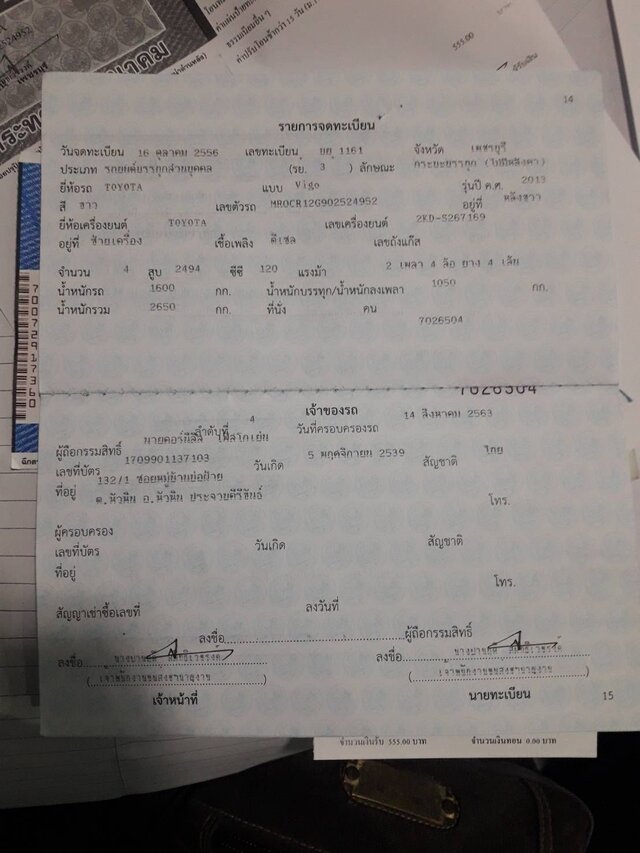 555.00
14
รายการจดทะเบียน
วันจดทะเบียน 16 ตุลาคม 2556 เลขทะเบียน บบ 1161 จังหวัด เพชรบุรี
ประเภท รถยนต์บรรทุกส่วนบุคคล (รย. 3 ) ลักษณะ กระบะบรรทุก (ไม่มีหลังคา)
ยี่ห้อรถ TOYOTA แบบ Vigo รุ่นปี ค.ศ. 2013
สี ขาว เลขตัวรถ MR0CR12G902524952 อยู่ที่ หลังขวา
ยี่ห้อเครื่องยนต์ TOYOTA เลขเครื่องยนต์ 2KD-S267169
อยู่ที่ ซ้ายเครื่อง เชื้อเพลิง ดีเซล เลขถังแก๊ส
จำนวน 4 สูบ 2494 ซีซี 120 แรงม้า 2 เพลา 4 ล้อ ยาง 4 เส้น
น้ำหนักรถ 1600 กก. น้ำหนักบรรทุก/น้ำหนักลงเพลา 1050 กก.
น้ำหนักรวม 2650 กก. ที่นั่ง คน
7026504
7026504
เจ้าของรถ
ลำดับที่ 4 วันที่ครอบครองรถ 14 สิงหาคม 2563
ผู้ถือกรรมสิทธิ์
เลขที่บัตร 1709901137103 วันเกิด 5 พฤศจิกายน 2539 สัญชาติ ไทย
ที่อยู่ 132/1 ซอยหมู่บ้านบ่อฝ้าย
ต.หัวหิน อ.หัวหิน ประจวบคีรีขันธ์ โทร.
ผู้ครอบครอง
เลขที่บัตร วันเกิด สัญชาติ
ที่อยู่
โทร.
สัญญาเช่าซื้อเลขที่ ลงวันที่
ลงชื่อ ผู้ถือกรรมสิทธิ์
ลงชื่อ ลงชื่อ
(เจ้าพนักงานขนส่งชำนาญงาน) (เจ้าพนักงานขนส่งชำนาญงาน)
เจ้าหน้าที่ นายทะเบียน
15
จำนวนเงินรับ 555.00 บาท จำนวนเงินทอน 0.00 บาท